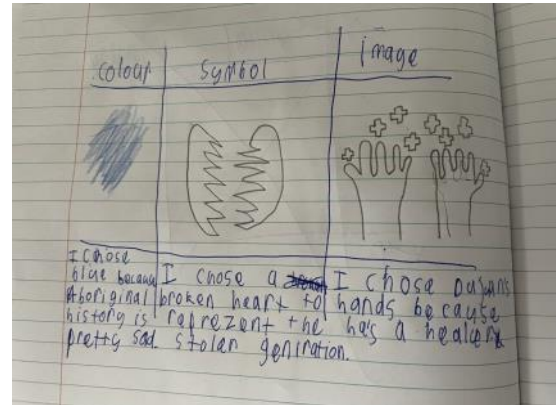 colour
symbol
image
I chose
blue because
Aboriginal
history is
pretty sad.
I chose a
broken heart to
reprezent the
stolan geniration.
I chose Dujuans
hands because
has a healer